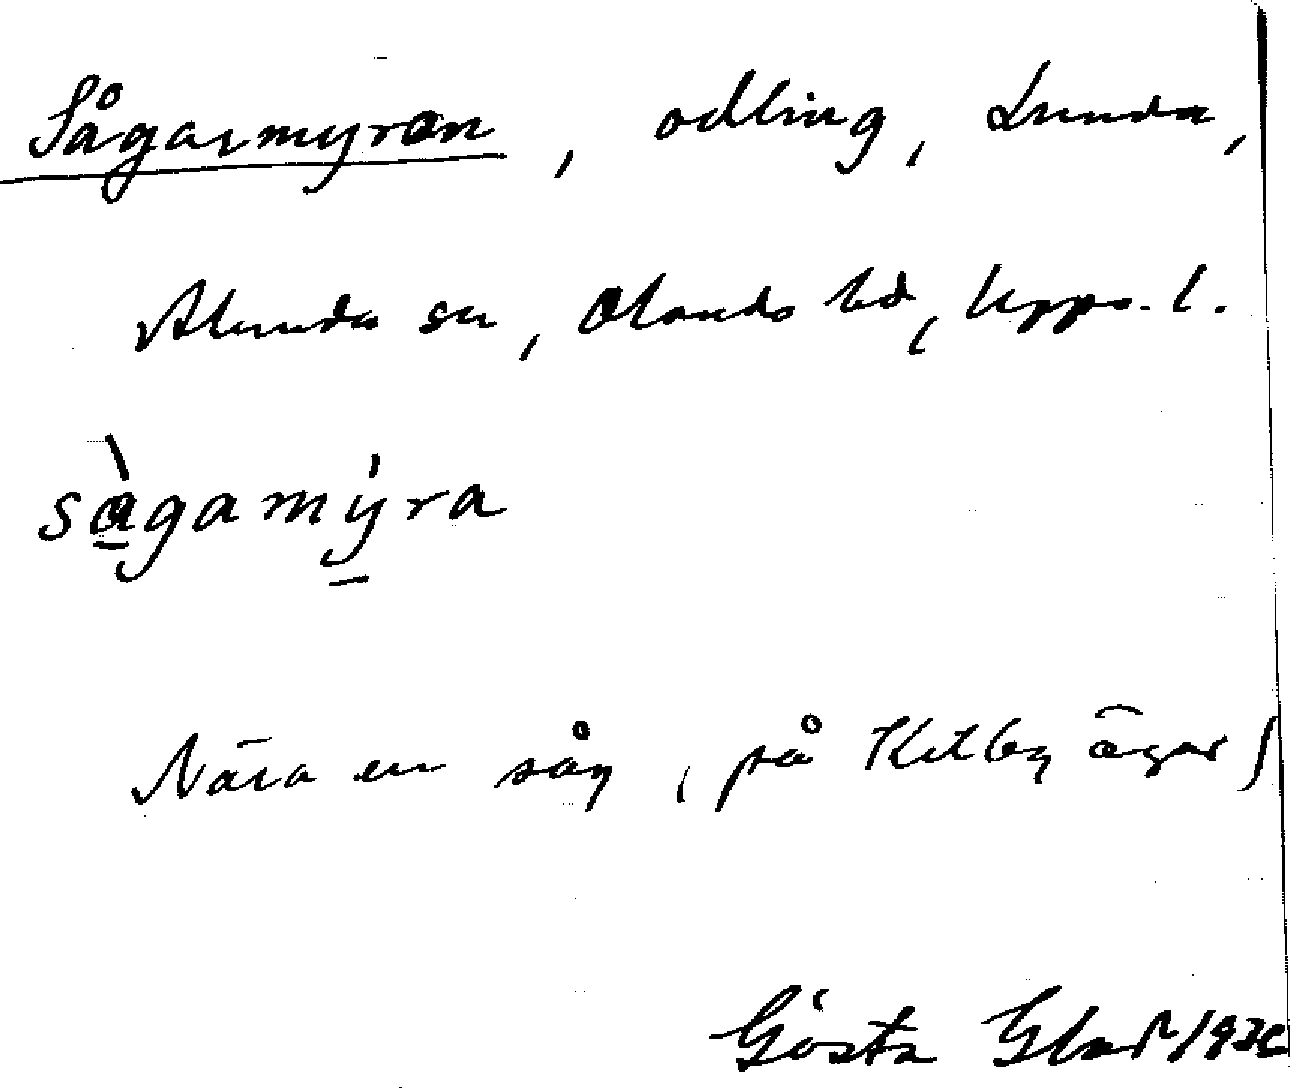 Sågarmyran, odling, Lunda,
Alunda sn, Olands hd, Upps. l.
sågamýra
Nära en såg, på Kilby ägor
Gösta